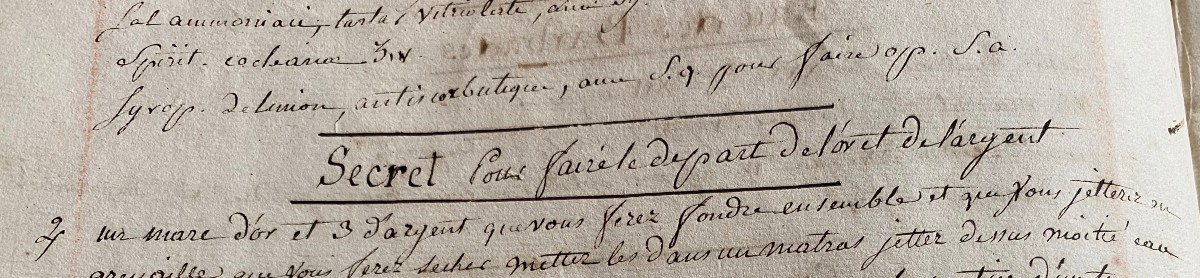 Sal ammoniac, tartr. vitriolette, ana
Spirit. cochleariae ʒiv.
Syrop. de limon, antiscorbutique, ana S.q. pour faire op. S.a.
Secret Pour faire le depart de l'or et de l'argent
♃ un marc d'or et 3 d'argent que vous ferez fondre ensemble et que Vous jetterez en
grenaille que Vous ferez secher mettez les dans un matras jettez dessus moitié eau